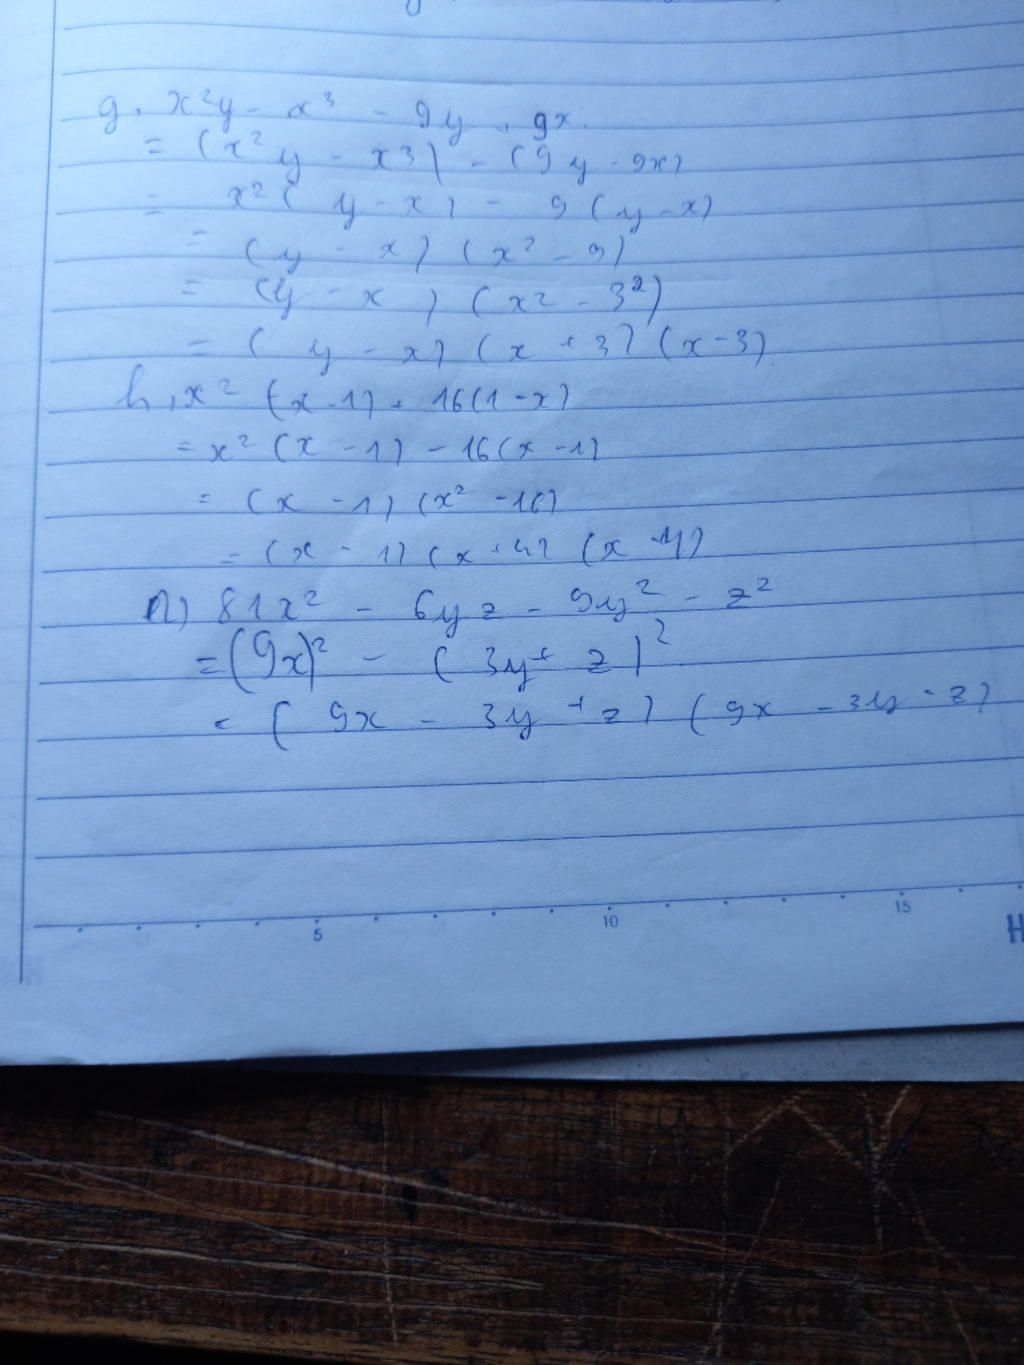 g, x²y - x³ - 9y + 9x.
= (x²y - x3) - (9y - 9x)
= x²(y - x) - 9(y - x)
= (y - x)(x² - 9)
= (y - x)(x2 - 3²)
= (y - x)(x + 3)(x - 3)
h, x²(x - 1) + 16(1 - x)
= x²(x - 1) - 16(x - 1)
= (x - 1)(x² - 16)
= (x - 1)(x + 4)(x - 4)
n) 81x² - 6yz - 9y² - z²
= (9x)² - (3y + z)²
= (9x - 3y + z)(9x - 3y - z)
5 10 15
H